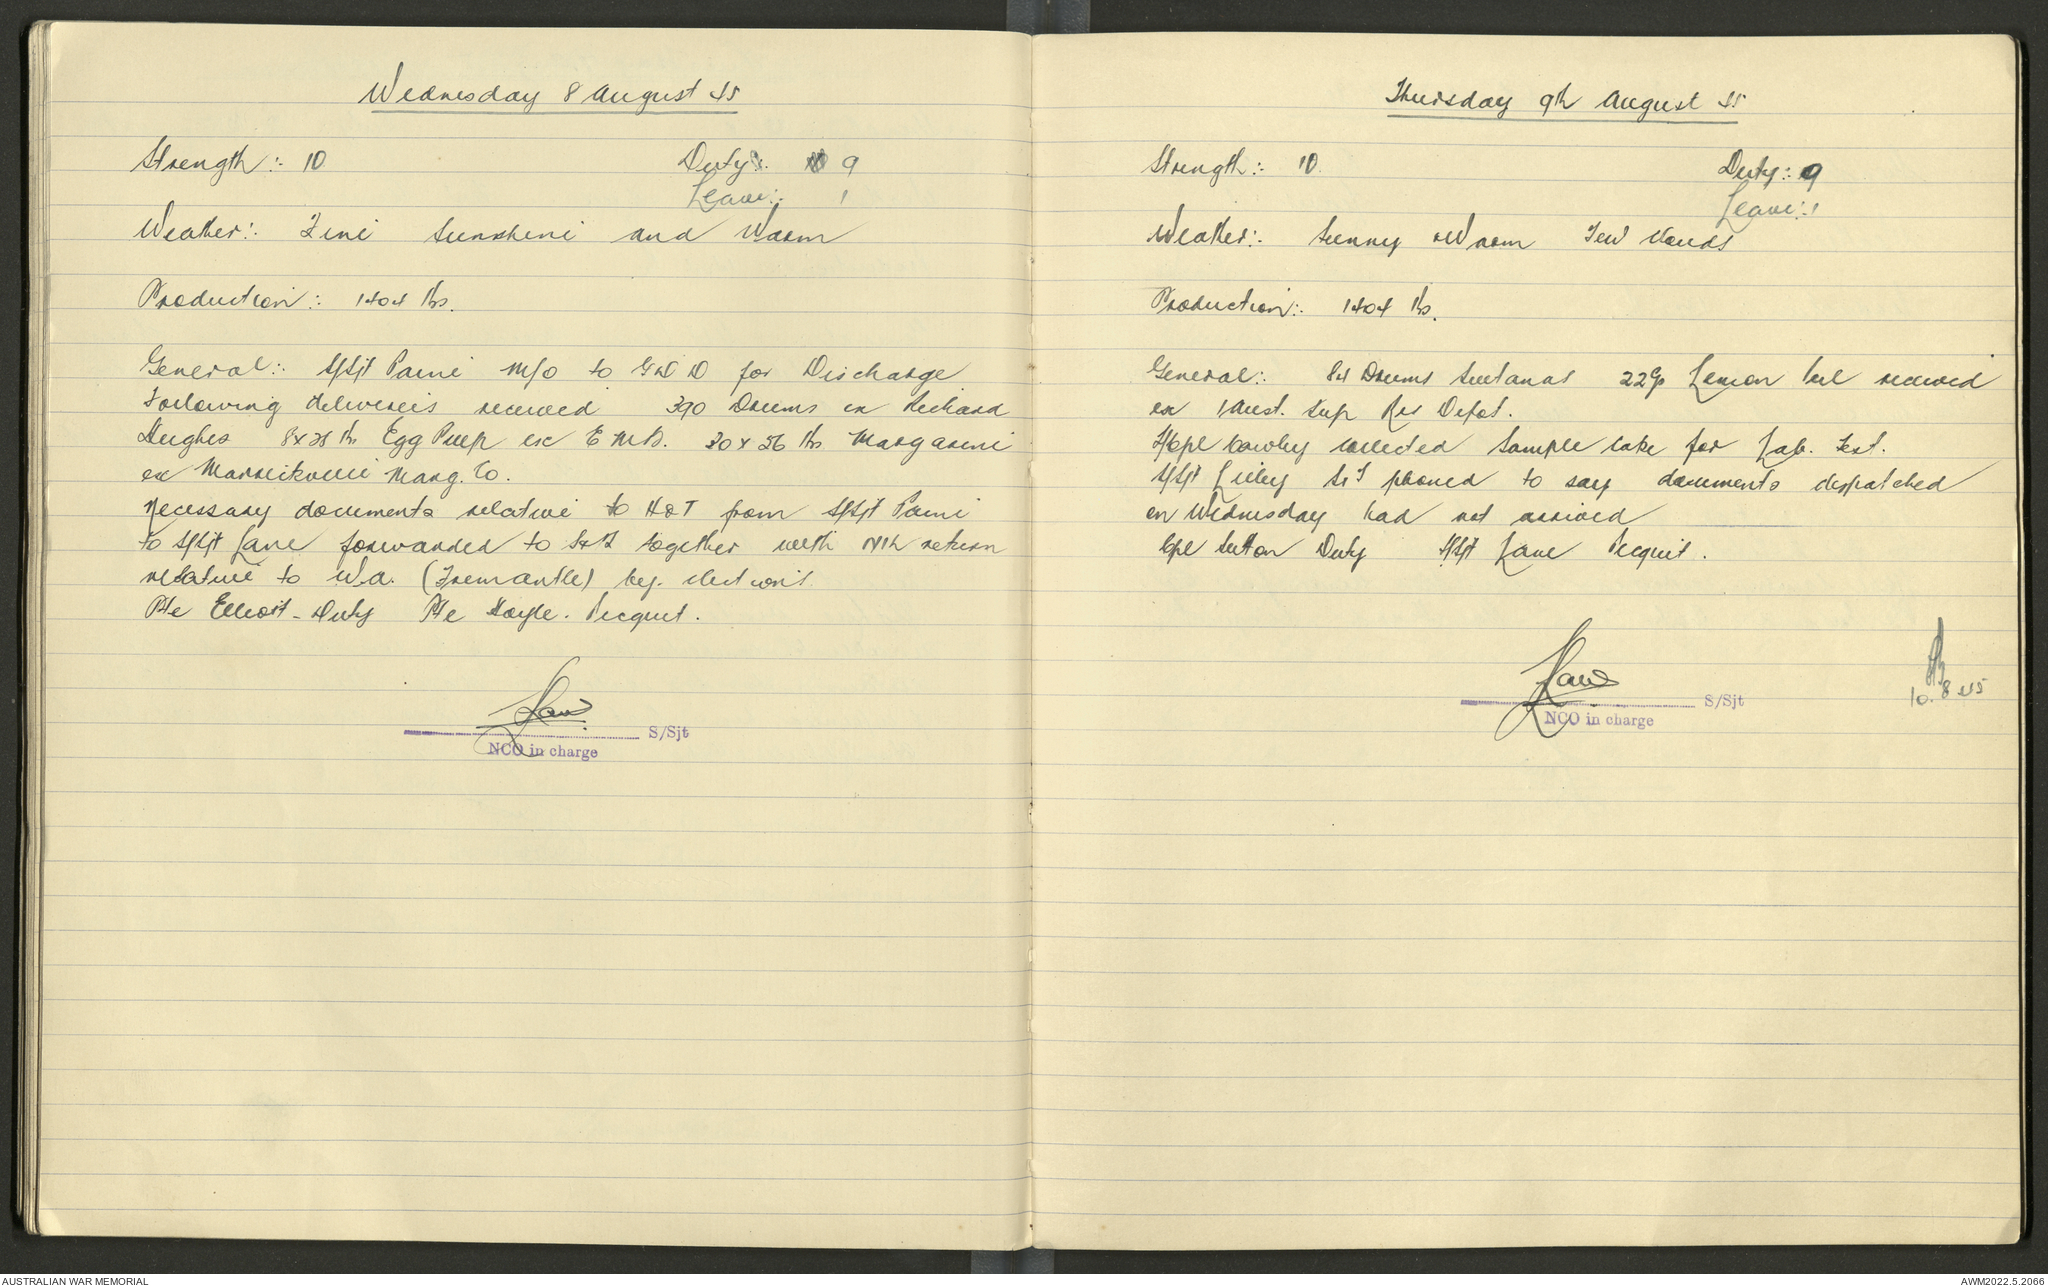 Wednesday 8 August 45
Strength:. 10 Duty:. 9
Leave:. 1
Weather:. Fine Sunshine and Warm
Production:. 1404 lbs.
General:. S/Sjt Paine M/O to GDD for Discharge
Following deliveries received 390 Drums ex Richard
Hughes 8x28 lbs Egg Pulp ex E.M.B. 20 x 56 lbs Margarine
ex Marrickville Marg. Co.
Necessary documents relative to HOT from S/Sjt Paine
to S/Sjt Lane forwarded to S&T together with return
relative to W.A. (Fremantle) by-elections
Pte Elliott - Duty Pte Hoyle. Picquet.
Lane
S/Sjt
NCO in charge
Thursday 9th August 45
Strength:. 10. Duty:. 9
Leave:. 1
Weather:. Sunny & Warm Few Clouds
Production:. 1404 lbs.
General:. 84 Drums Sultanas Lemon Peel received
ex 1 Aust. Sup Res Depot.
Cowley collected Sample Cake for Lab. Test.
S/Sjt Lilley S&T phoned to say documents despatched
on Wednesday had not arrived
Cpl Sutton Duty S/Sjt Lane Picquit.
Lane
S/Sjt
NCO in charge
10.8.45
AUSTRALIAN WAR MEMORIAL AWM2022.5.2066